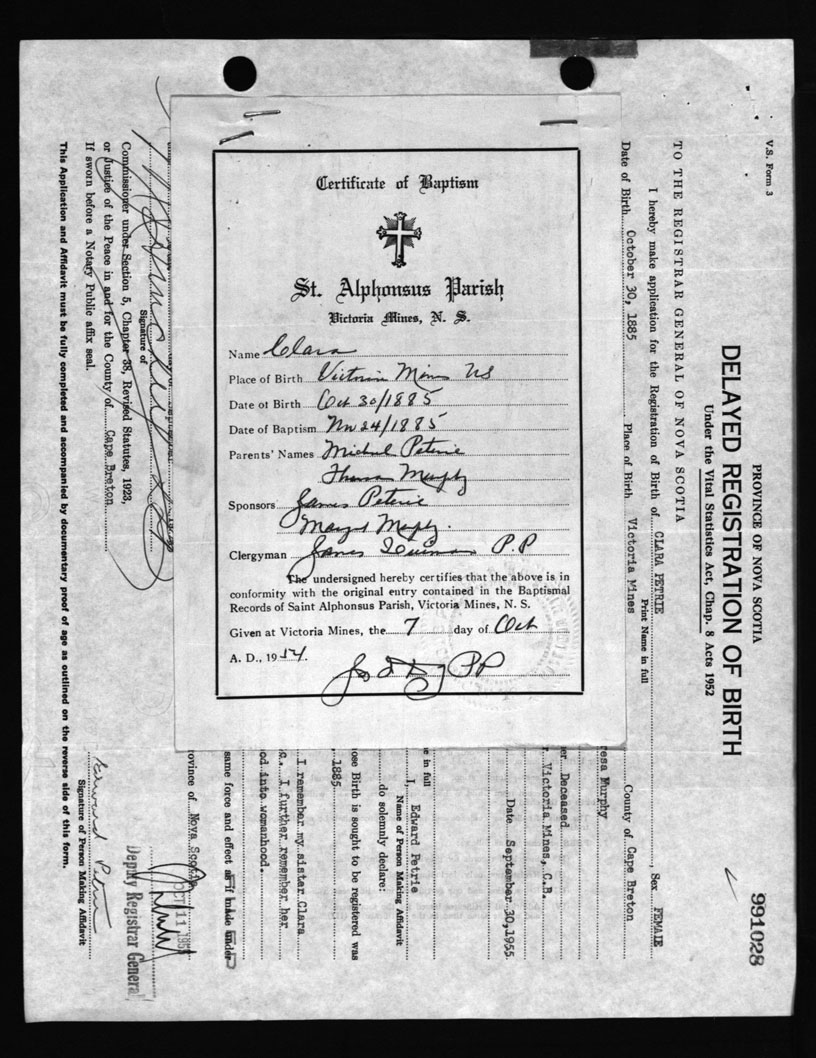 Certificate of Baptism
St. Alphonsus Parish
Victoria Mines, N. S.
Name Clara
Place of Birth Victoria Mines NS
Date of Birth Oct 30/1885
Date of Baptism Nov 24/1885
Parents' Names Michael Peterie
Theresa Murphy
Sponsors James Peterie
Margt Murphy.
Clergyman James P.P
The undersigned hereby certifies that the above is in
conformity with the original entry contained in the Baptismal
Records of Saint Alphonsus Parish, Victoria Mines, N. S.
Given at Victoria Mines, the 7 day of Oct
A. D., 1954.
PP
V.S. Form 3
991028
PROVINCE OF NOVA SCOTIA
DELAYED REGISTRATION OF BIRTH
Under the Vital Statistics Act, Chap. 8 Acts 1952
TO THE REGISTRAR GENERAL OF NOVA SCOTIA
I hereby make application for the Registration of Birth of CLARA PETRIE, Sex FEMALE
Print Name in full
Date of Birth October 30, 1885 Place of Birth Victoria Mines County of Cape Breton
resa Murphy
er Deceased
r. Victoria Mines, C.B.
Date September 30, 1955
e in full
I, Edward Petrie
Name of Person Making Affidavit
do solemnly declare:
ose Birth is sought to be registered was
1885
I remember my sister Clara
d. I further remember her
od into womanhood.
same force and effect as if made under
rovince of Nova Scotia
Signature of
Commissioner under Section 5, Chapter 38, Revised Statutes, 1923,
or Justice of the Peace in and for the County of Cape Breton
If sworn before a Notary Public affix seal.
OCT 11 1955
Deputy Registrar General
Edward Petrie
Signature of Person Making Affidavit
This Application and Affidavit must be fully completed and accompanied by documentary proof of age as outlined on the reverse side of this form.